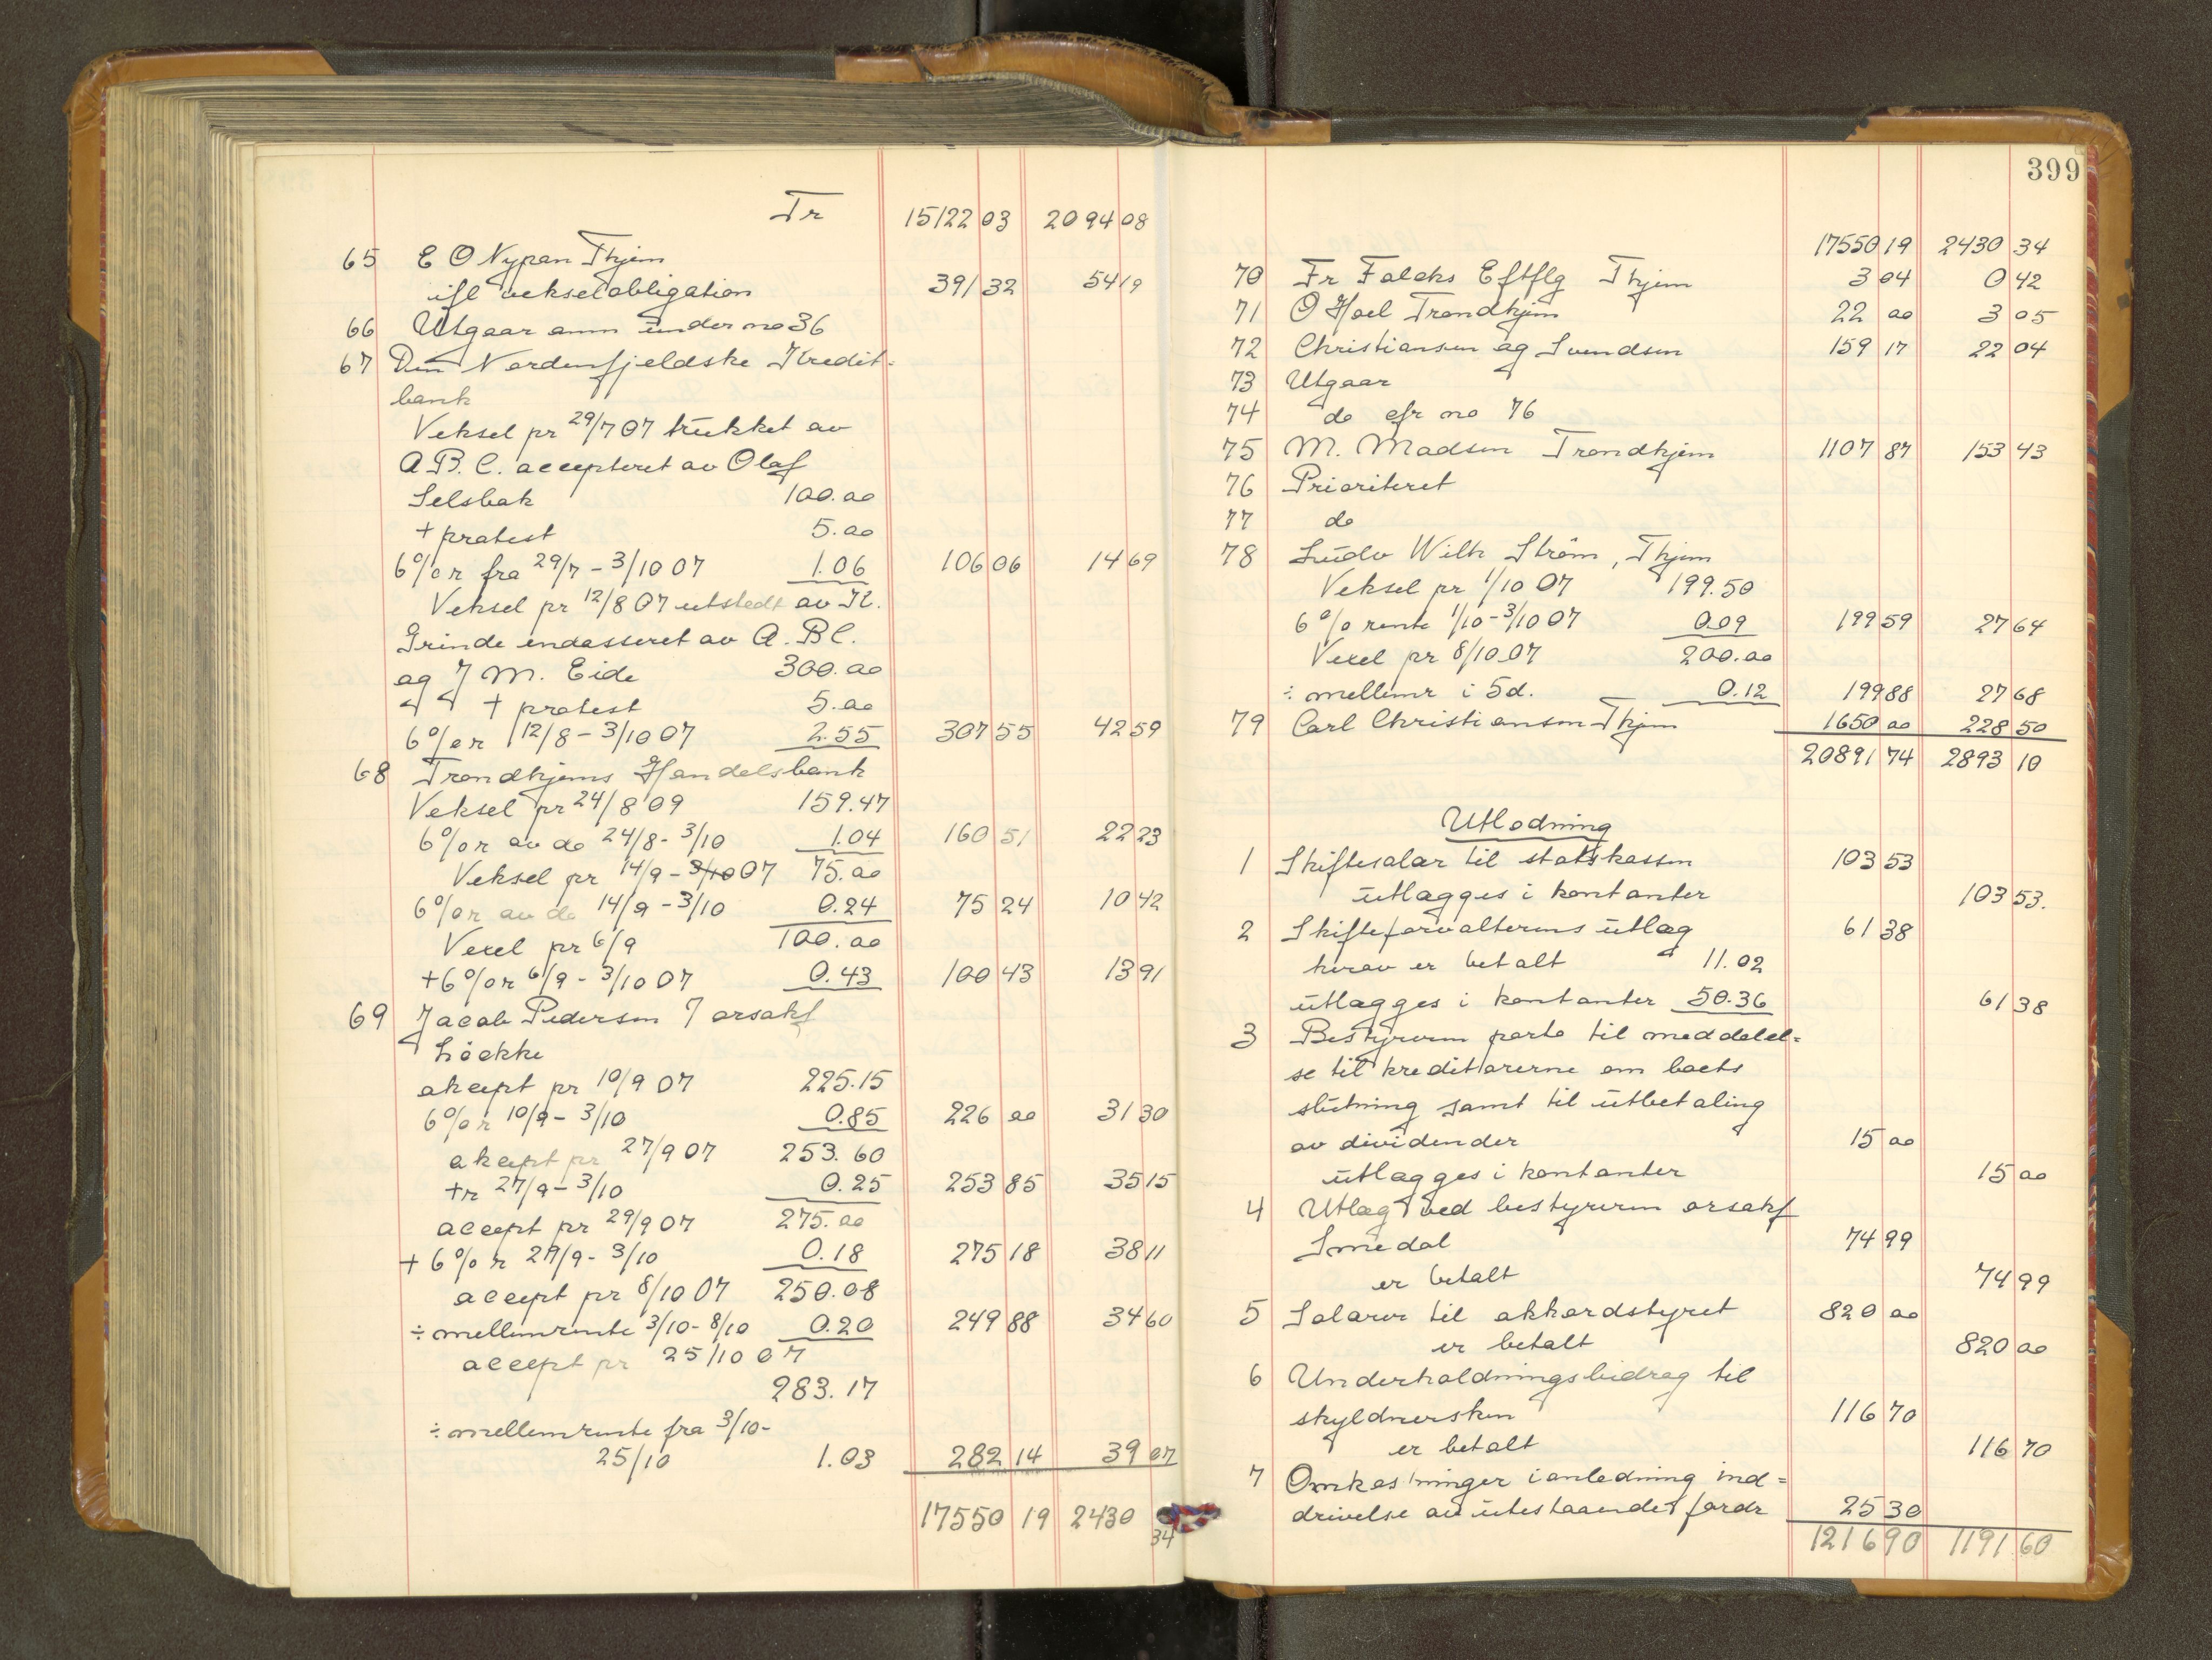 Tr 15122 03 2094 08
65 E O Nypan Thjem
ifl vekselobligation 391 32 54 19
66 Utgaar anm under no 36
67 Den Nordenfjeldske Kredit-
bank
Veksel pr 29/7 07 trukket av
A.B.C. accepteret av Olaf
Selsbak 100.00
+ protest 5.00
6% r fra 29/7 - 3/10 07 1.06 106 06 14 69
Veksel pr 12/8 07 utstedt av K.
Grinde endosseret av A.B.C.
og J M. Eide 300.00
+ protest 5.00
6% r 12/8 - 3/10 07 2.55 307 55 42 59
68 Trondhjems Handelsbank
Veksel pr 24/8 09 159.47
6% r av do 24/8 - 3/10 1.04 160 51 22 23
Veksel pr 14/9 - 3/10 07 75.00
6% r av do 14/9 - 3/10 0.24 75 24 10 42
Vexel pr 6/9 100.00
+ 6% r 6/9 - 3/10 07 0.43 100 43 13 91
69 Jacob Pedersen / orsakf
Löekke
akcept pr 10/9 07 225.15
6% r 10/9 - 3/10 0.85 226 00 31 30
akcept pr 27/9 07 253.60
+ r 27/9 - 3/10 0.25 253 85 35 15
accept pr 29/9 07 275.00
+ 6% r 29/9 - 3/10 0.18 275 18 38 11
accept pr 8/10 07 250.08
÷ mellemrente 3/10 - 8/10 0.20 249 88 34 60
accept pr 25/10 07
283.17
÷ mellemrente fra 3/10 -
25/10 1.03 282 14 39 07
17550 19 2430 34
399
17550 19 2430 34
70 Fr Falcks Eftflg Thjem 3 04 0 42
71 O Hoel Trondhjem 22 00 3 05
72 Christiansen og Svendsen 159 17 22 04
73 Utgaar
74 do cfr no 76
75 M. Madsen Trondhjem 1107 87 153 43
76 Prioriteret
77 do
78 Ludv Wilh Ström, Thjem
Veksel pr 1/10 07 199.50
6% rente 1/10 - 3/10 07 0.09 199 59 27 64
Vexel pr 8/10 07 200.00
÷ mellemr i 5 d. 0.12 199 88 27 68
79 Carl Christiansen Thjem 1650 00 228 50
20891 74 2893 10
Utlodning
1 Skiftesalar til statskassen 103 53
utlægges i kontanter 103 53.
2 Skifteforvalterens utlæg 61 38
herav er betalt 11.02
utlægges i kontanter 50.36 61 38
3 Bestyreren porto til meddelel-
se til kreditorerne om boets
slutning samt til utbetaling
av dividender 15 00
utlægges i kontanter 15 00
4 Utlæg ved bestyreren orsakf
Smedal 74 99
er betalt 74 99
5 Salarer til akkordstyret 820 00
er betalt 820 00
6 Underholdningsbidrag til
skyldnersken 116 70
er betalt 116 70
7 Omkostninger i anledning ind-
drivelse av utestaaende fordr 25 30
1216 90 1191 60